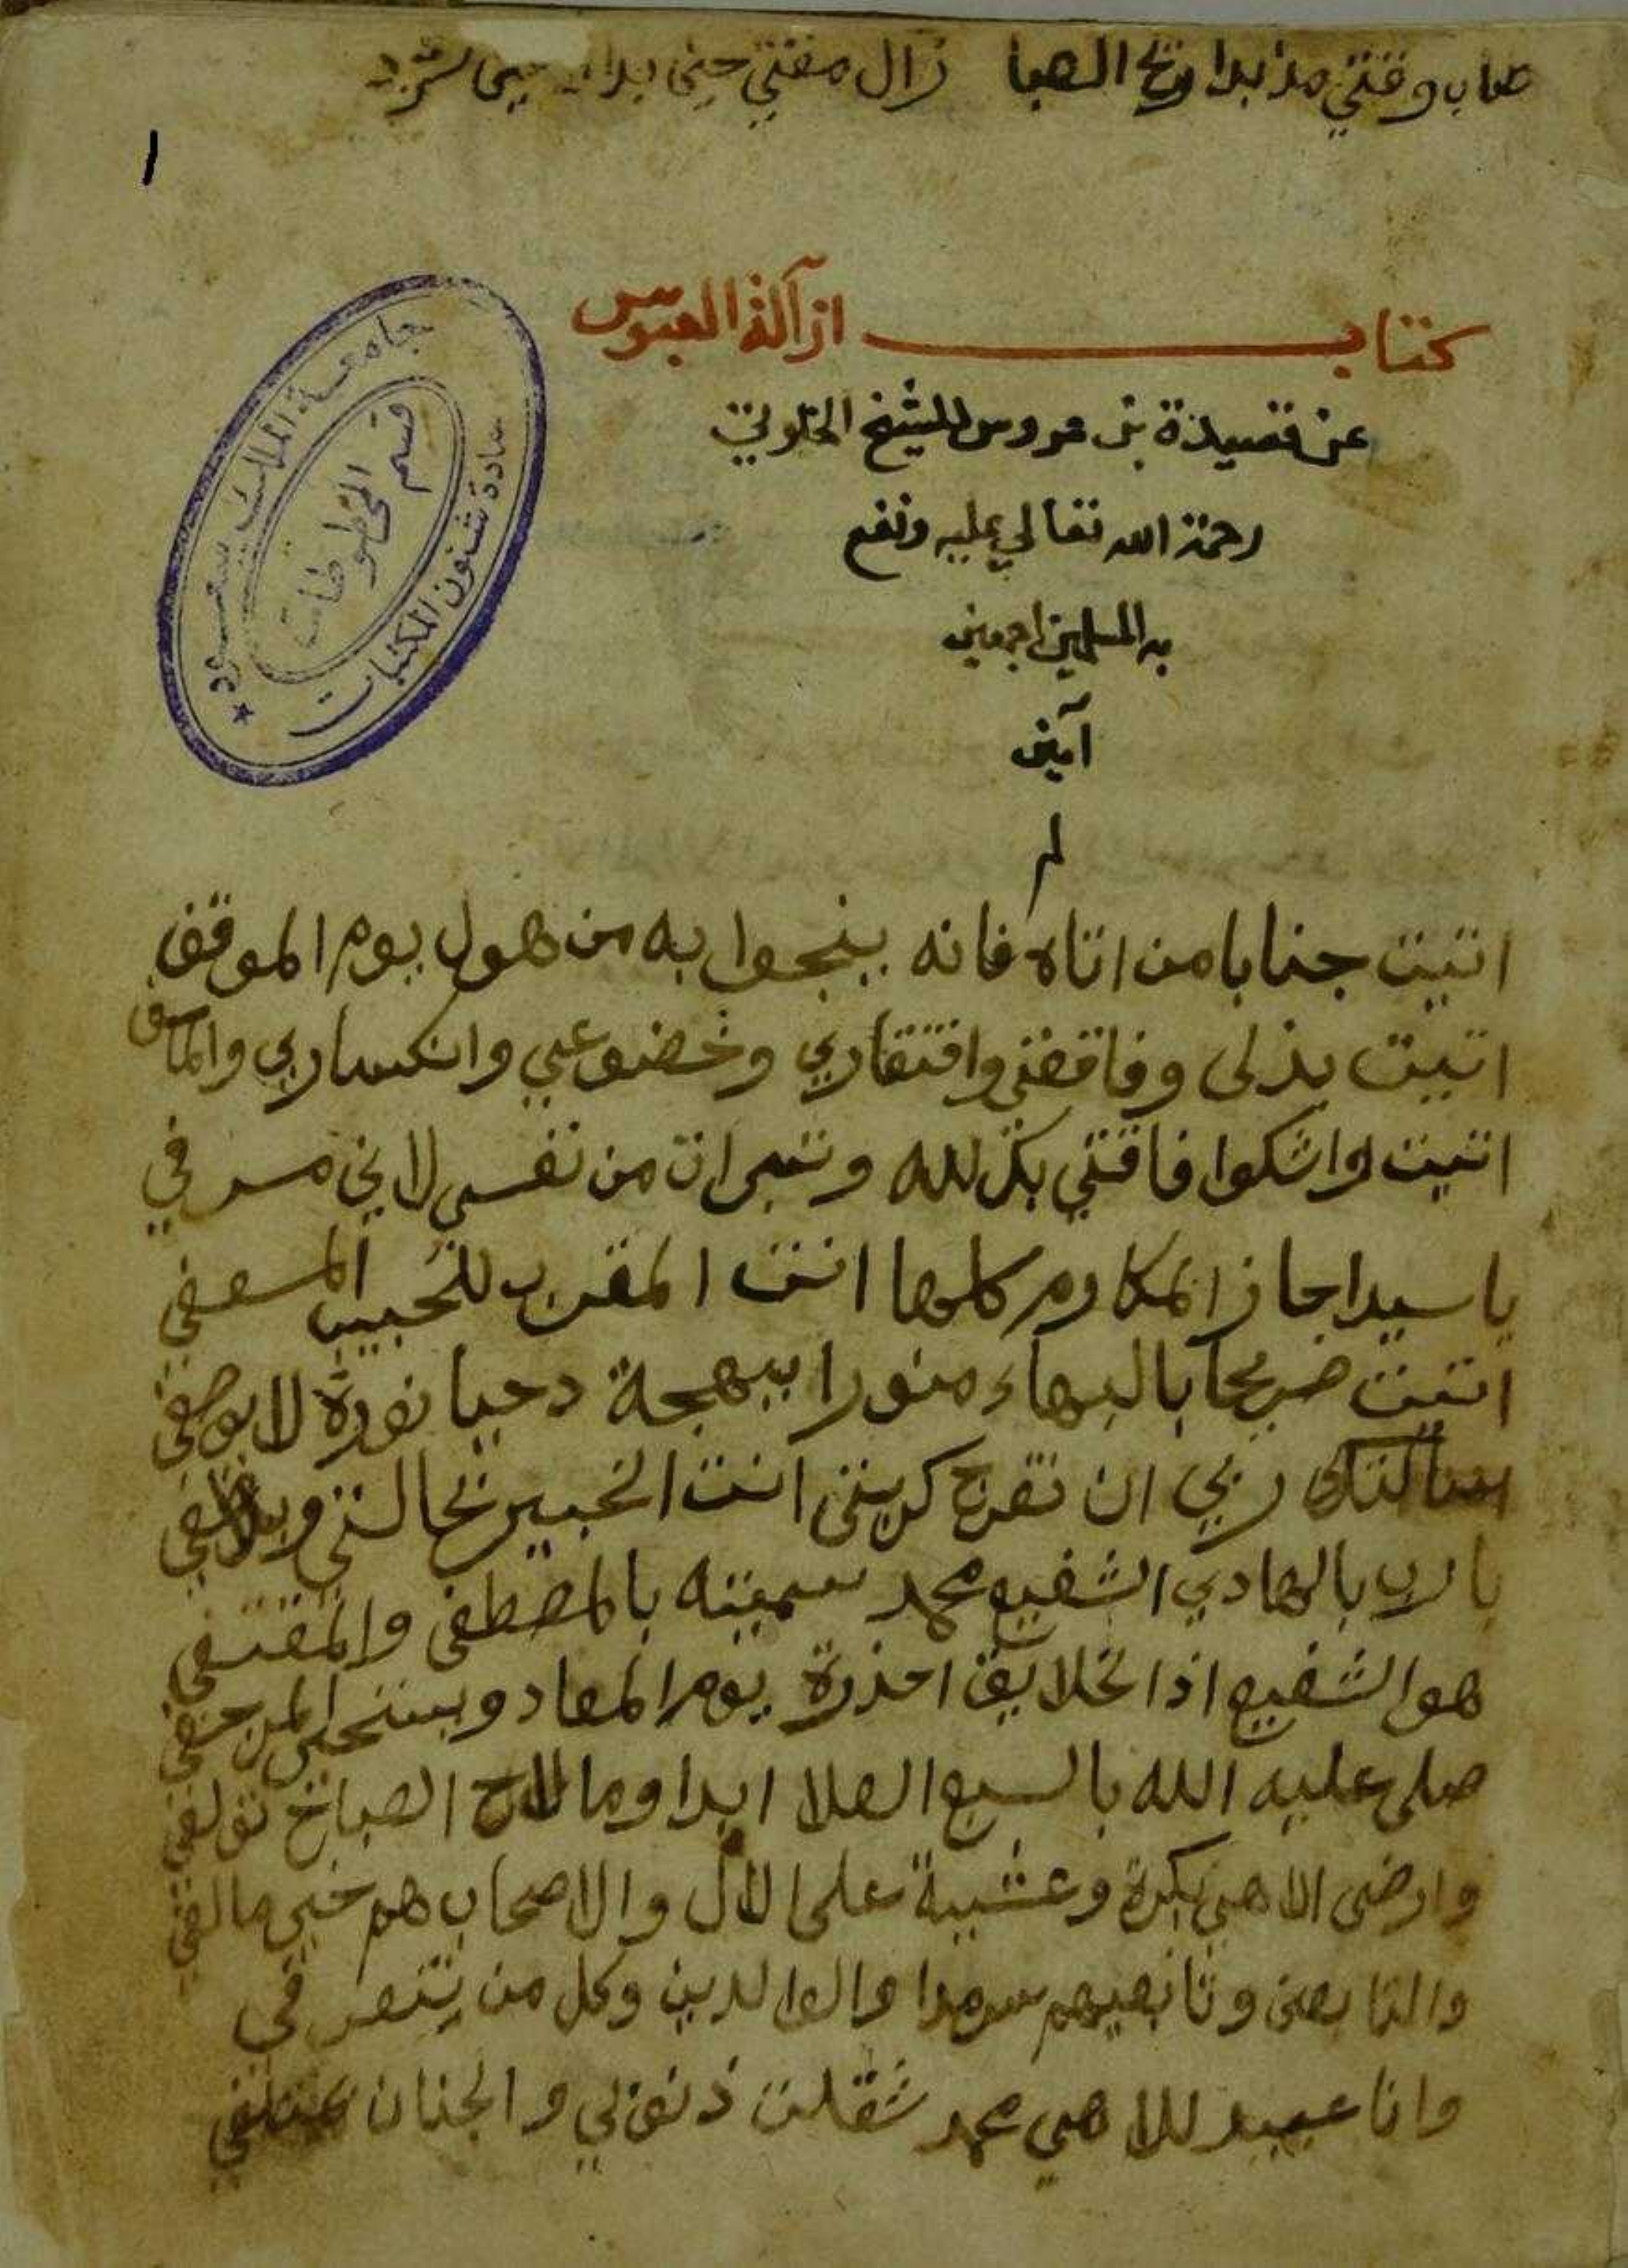 طاب وقتي مذ بدا ريح الصبا زال مقتي حين بدا
١
كتاب ازآلة العبوس
عن قصيدة بن عروس للشيخ الخلوتي
رحمة الله تعالي عليه ونفع
به المسلمين اجمعين
آمين
م
جامعة الملك سعود
قسم المخطوطات
عمادة شئون المكتبات
اتيت جنابا من اتاه فانه ينجوا به من هول يوم الموقف
اتيت بذلى وفاقتي وافتقاري وخضوعي وانكساري
اتيت اواشكوا فاقتي بك لله وتبرات من نفسي لاني مسرفي
يا سيدا حاز المكارم كلها انت المقرب للحبيب المسعفي
اتيت ضريحا بالبهاء منورا ببهجة دحيا نوره لا يوصفي
سالتك ربي ان تفرج كربتي انت الخبير بحالتي
يا رب بالهادي الشفيع محمد سميته بالمصطفى والمقتفي
هو الشفيع اذا الخلايق احذرة يوم المعاد
صلى عليه الله بالسبع العلا ابدا وما لاح الصباخ
وارضى الاهي بكرة وعشية على الال والاصحاب هم خير مالفي
والتابعين وتابعيهم سرمدا والوالدين وكل من يتصرفي
وانا عبيد للاهي محمد ثقلت ذنوبي والجنان